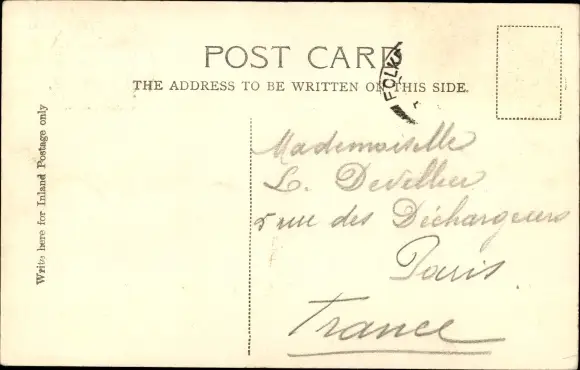 POST CARD
THE ADDRESS TO BE WRITTEN ON THIS SIDE.
FOLK
Write here for Inland Postage only
Mademoiselle
L. Devellier
5 rue des Déchargeurs
Paris.
France